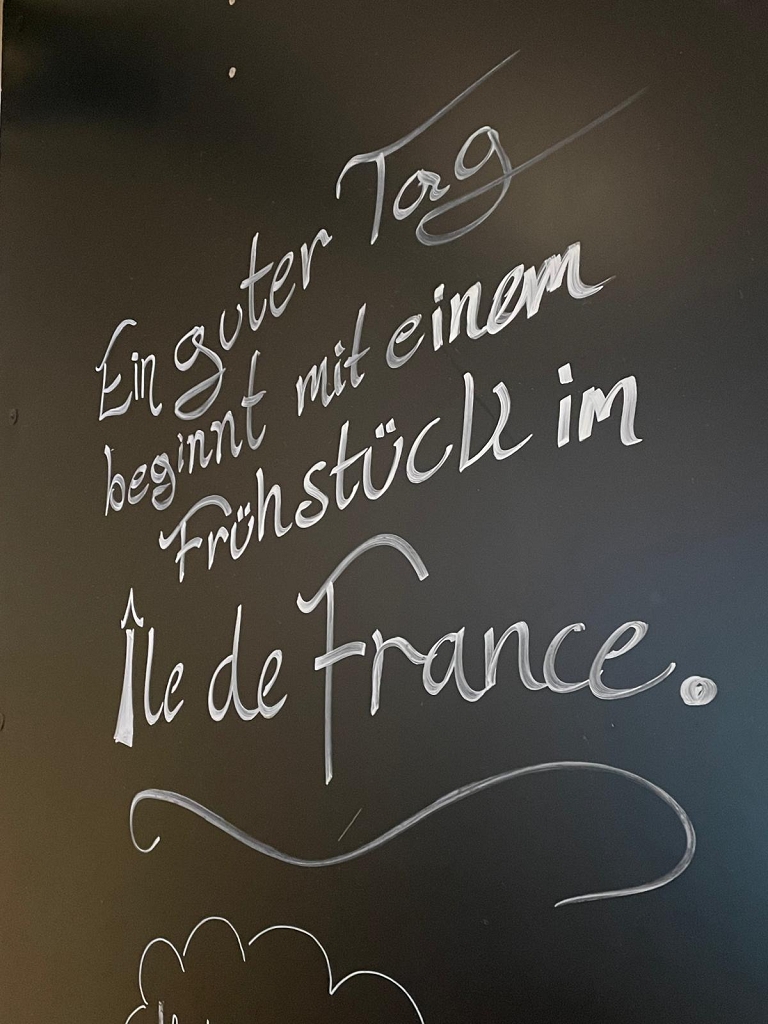 Ein guter Tag
beginnt mit einem
Frühstück im
Île de France.